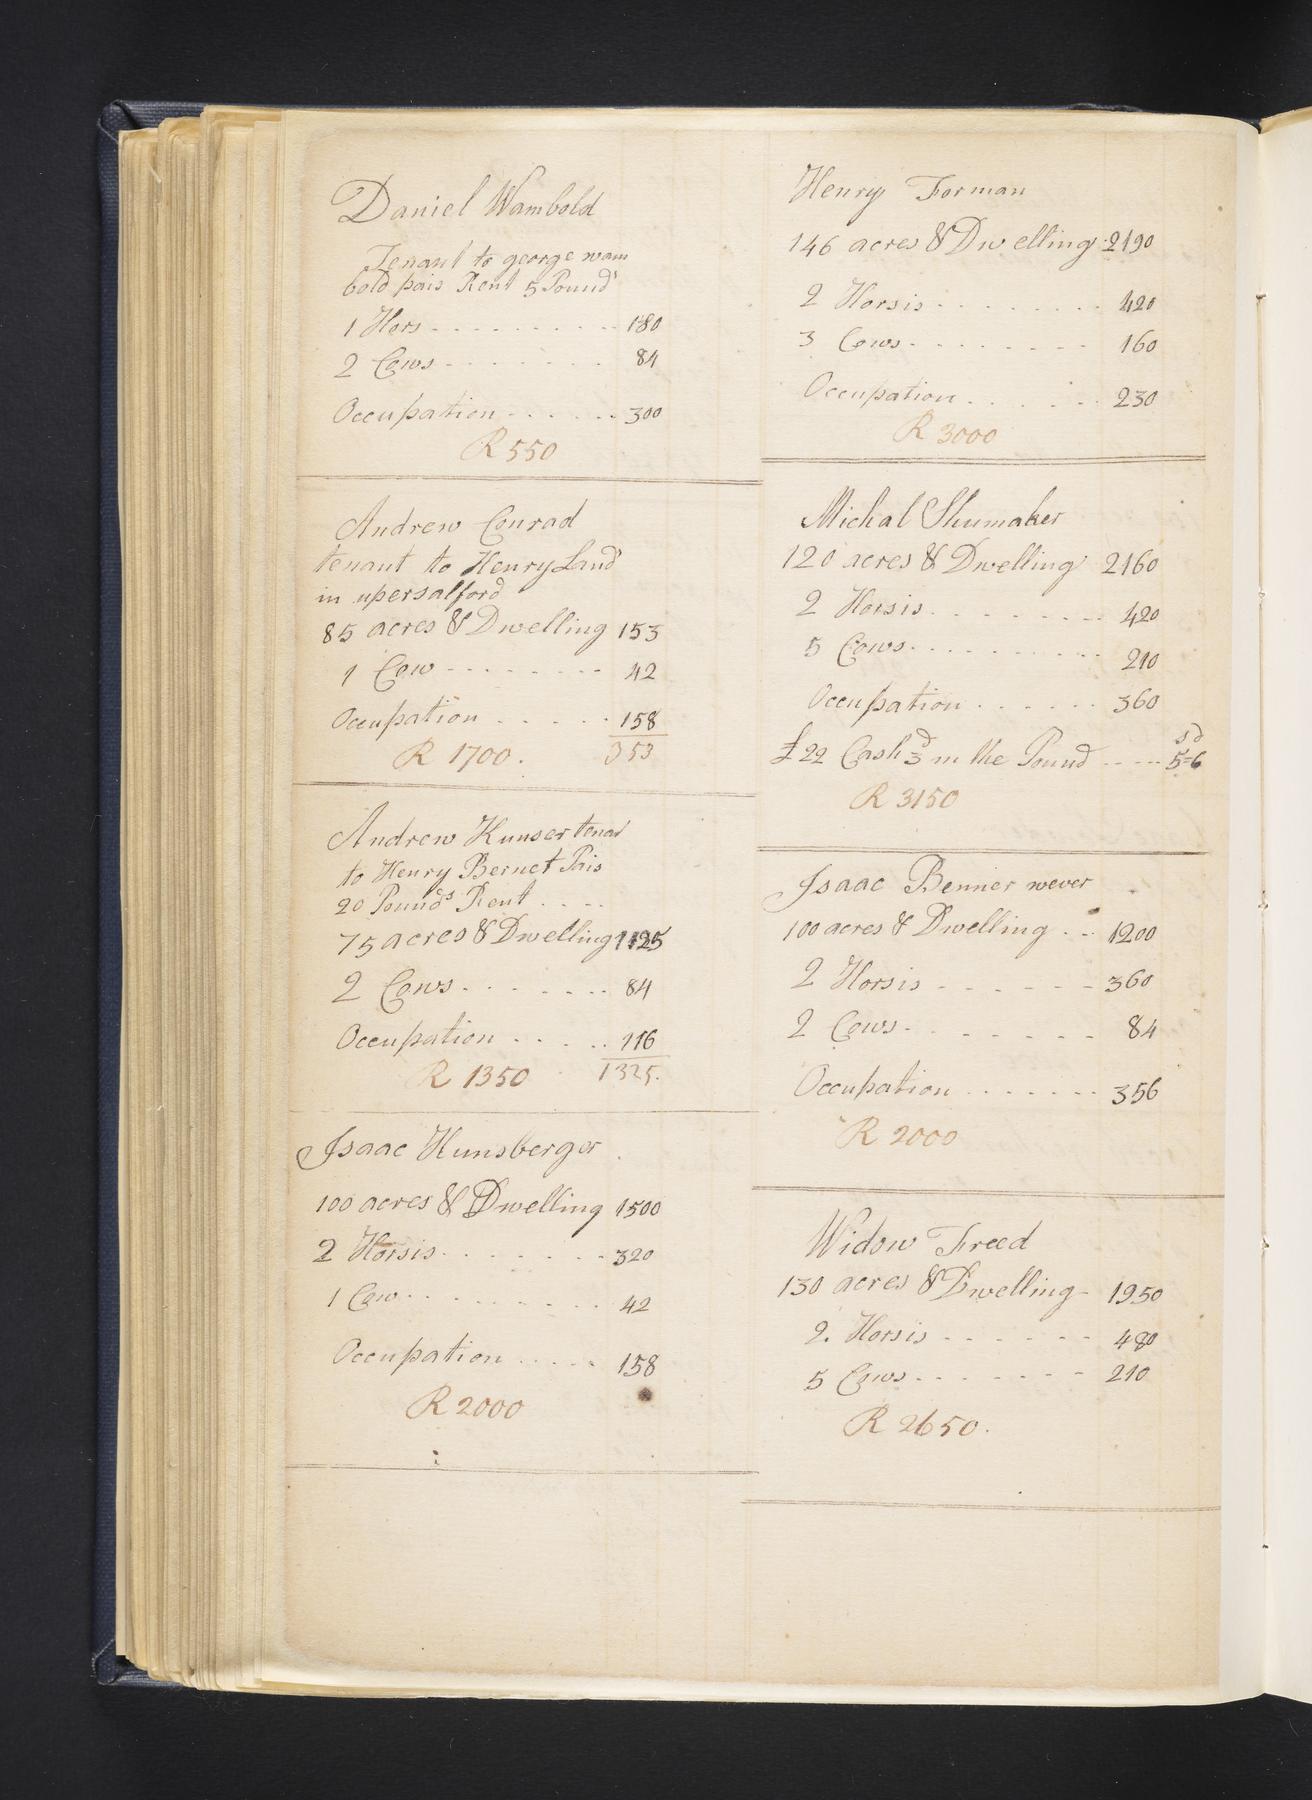 Daniel Wambold
Tenant to george wam
bold pais Rent 5 Pound
1 Hors - - - - - - - - - - 180
2 Cows - - - - - - - - 84
Occupation - - - - - - 300
R 550
Andrew Conrad
tenant to Henry Land
in upersalford
85 acres & Dwelling 153
1 Cow - - - - - - - - 42
Occupation - - - - - 158
R 1700. 353
Andrew Hunser tenat
to Henry Bernet Pais
20 Pounds Rent - - - -
75 acres & Dwelling 1125
2 Cows - - - - - - - 84
Occupation - - - - - 116
R 1350 1325.
Isaac Hunsberger
100 acres & Dwelling 1500
2 Horsis - - - - - - - - 320
1 Cow - - - - - - - - - - 42
Occupation - - - - - 158
R 2000
Henry Forman
146 acres & Dwelling - 2190
2 Horsis - - - - - - - - - 420
3 Cows - - - - - - - - 160
Occupation - - - - - - 230
R 3000
Michal Shumaker
120 acres & Dwelling 2160
2 Horsis - - - - - - - - 420
5 Cows - - - - - - - - - - 210
Occupation - - - - - - 360
s d
£22 Cash 3d in the Pound - - - - - 5=6
R 3150
Isaac Benner wever
100 acres & Dwelling - - - 1200
2 Horsis - - - - - - - 360
2 Cows - - - - - - - 84
Occupation - - - - - - - 356
R 2000
Widow Freed
130 acres & Dwelling - 1950
2. Horsis - - - - - - - 480
5 Cows - - - - - - - - 210
R 2650.